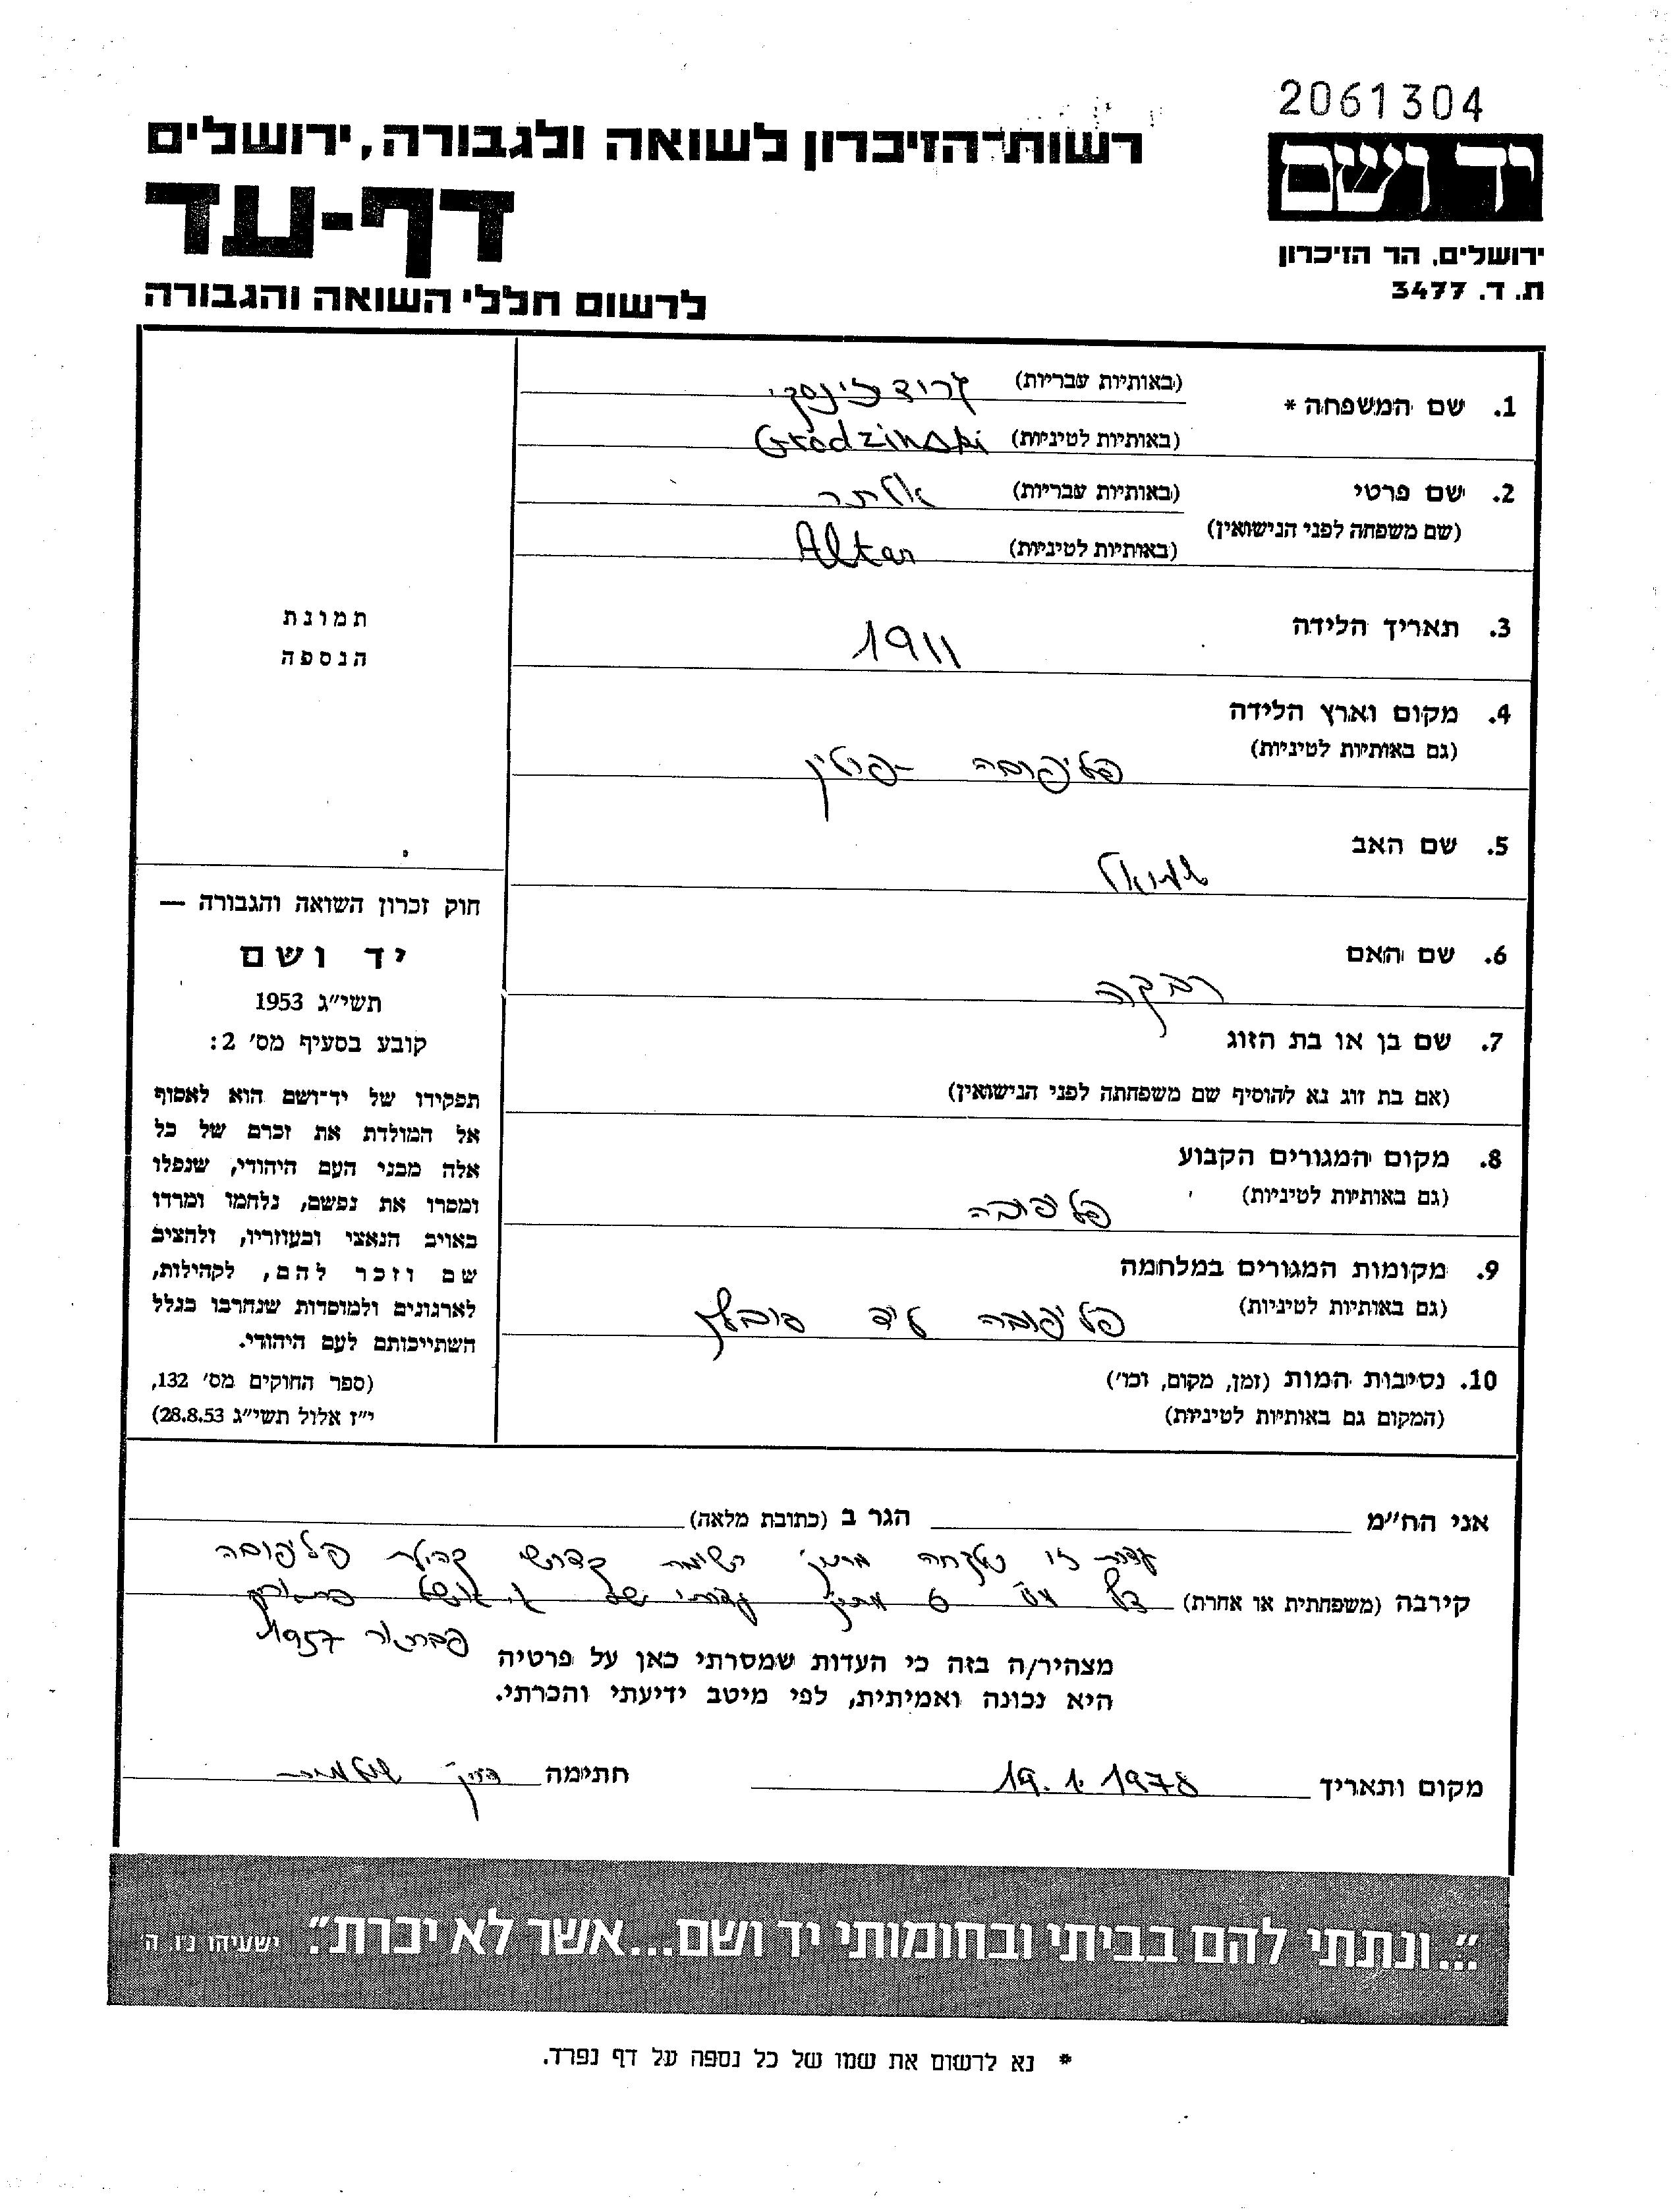 2061304
יד ושם
ירושלים, הר הזיכרון
ת. ד. 3477
רשות־הזיכרון לשואה ולגבורה, ירושלים
דף-עד
לרשום חללי השואה והגבורה
1. שם המשפחה *
(באותיות עבריות) גרודזינסקי
(באותיות לטיניות) Grodzinski
2. שם פרטי
(שם משפחה לפני הנישואין)
(באותיות עבריות) אלתר
(באותיות לטיניות) Alter
3. תאריך הלידה 1911
4. מקום וארץ הלידה
(גם באותיות לטיניות) פיליפובה - פולין
5. שם האב שמואל
6. שם האם רבקה
7. שם בן או בת הזוג
(אם בת זוג נא להוסיף שם משפחתה לפני הנישואין)
8. מקום המגורים הקבוע
(גם באותיות לטיניות) פיליפובה
9. מקומות המגורים במלחמה
(גם באותיות לטיניות) פיליפובה ליד סובלק
10. נסיבות המות (זמן, מקום, וכו')
(המקום גם באותיות לטיניות)
תמונת
הנספה
חוק זכרון השואה והגבורה —
יד ושם
תשי״ג 1953
קובע בסעיף מס' 2:
תפקידו של יד־ושם הוא לאסוף
אל המולדת את זכרם של כל
אלה מבני העם היהודי, שנפלו
ומסרו את נפשם, נלחמו ומרדו
באויב הנאצי ובעוזריו, ולהציב
שם וזכר להם, לקהילות,
לארגונים ולמוסדות שנחרבו בגלל
השתייכותם לעם היהודי.
(ספר החוקים מס' 132,
י״ז אלול תשי״ג 28.8.53)
אני הח״מ הגר ב (כתובת מלאה)
עדות זו נלקחה מתוך רשימת קדושי קהילת פיליפובה
קירבה (משפחתית או אחרת) דף מס 6 מתוך
פברואר 1957
מצהיר/ה בזה כי העדות שמסרתי כאן על פרטיה
היא נכונה ואמיתית, לפי מיטב ידיעתי והכרתי.
מקום ותאריך 19.1.1978 חתימה
״...ונתתי להם בביתי ובחומותי יד ושם...אשר לא יכרת״. ישעיהו נ״ו, ה׳
* נא לרשום את שמו של כל נספה על דף נפרד.